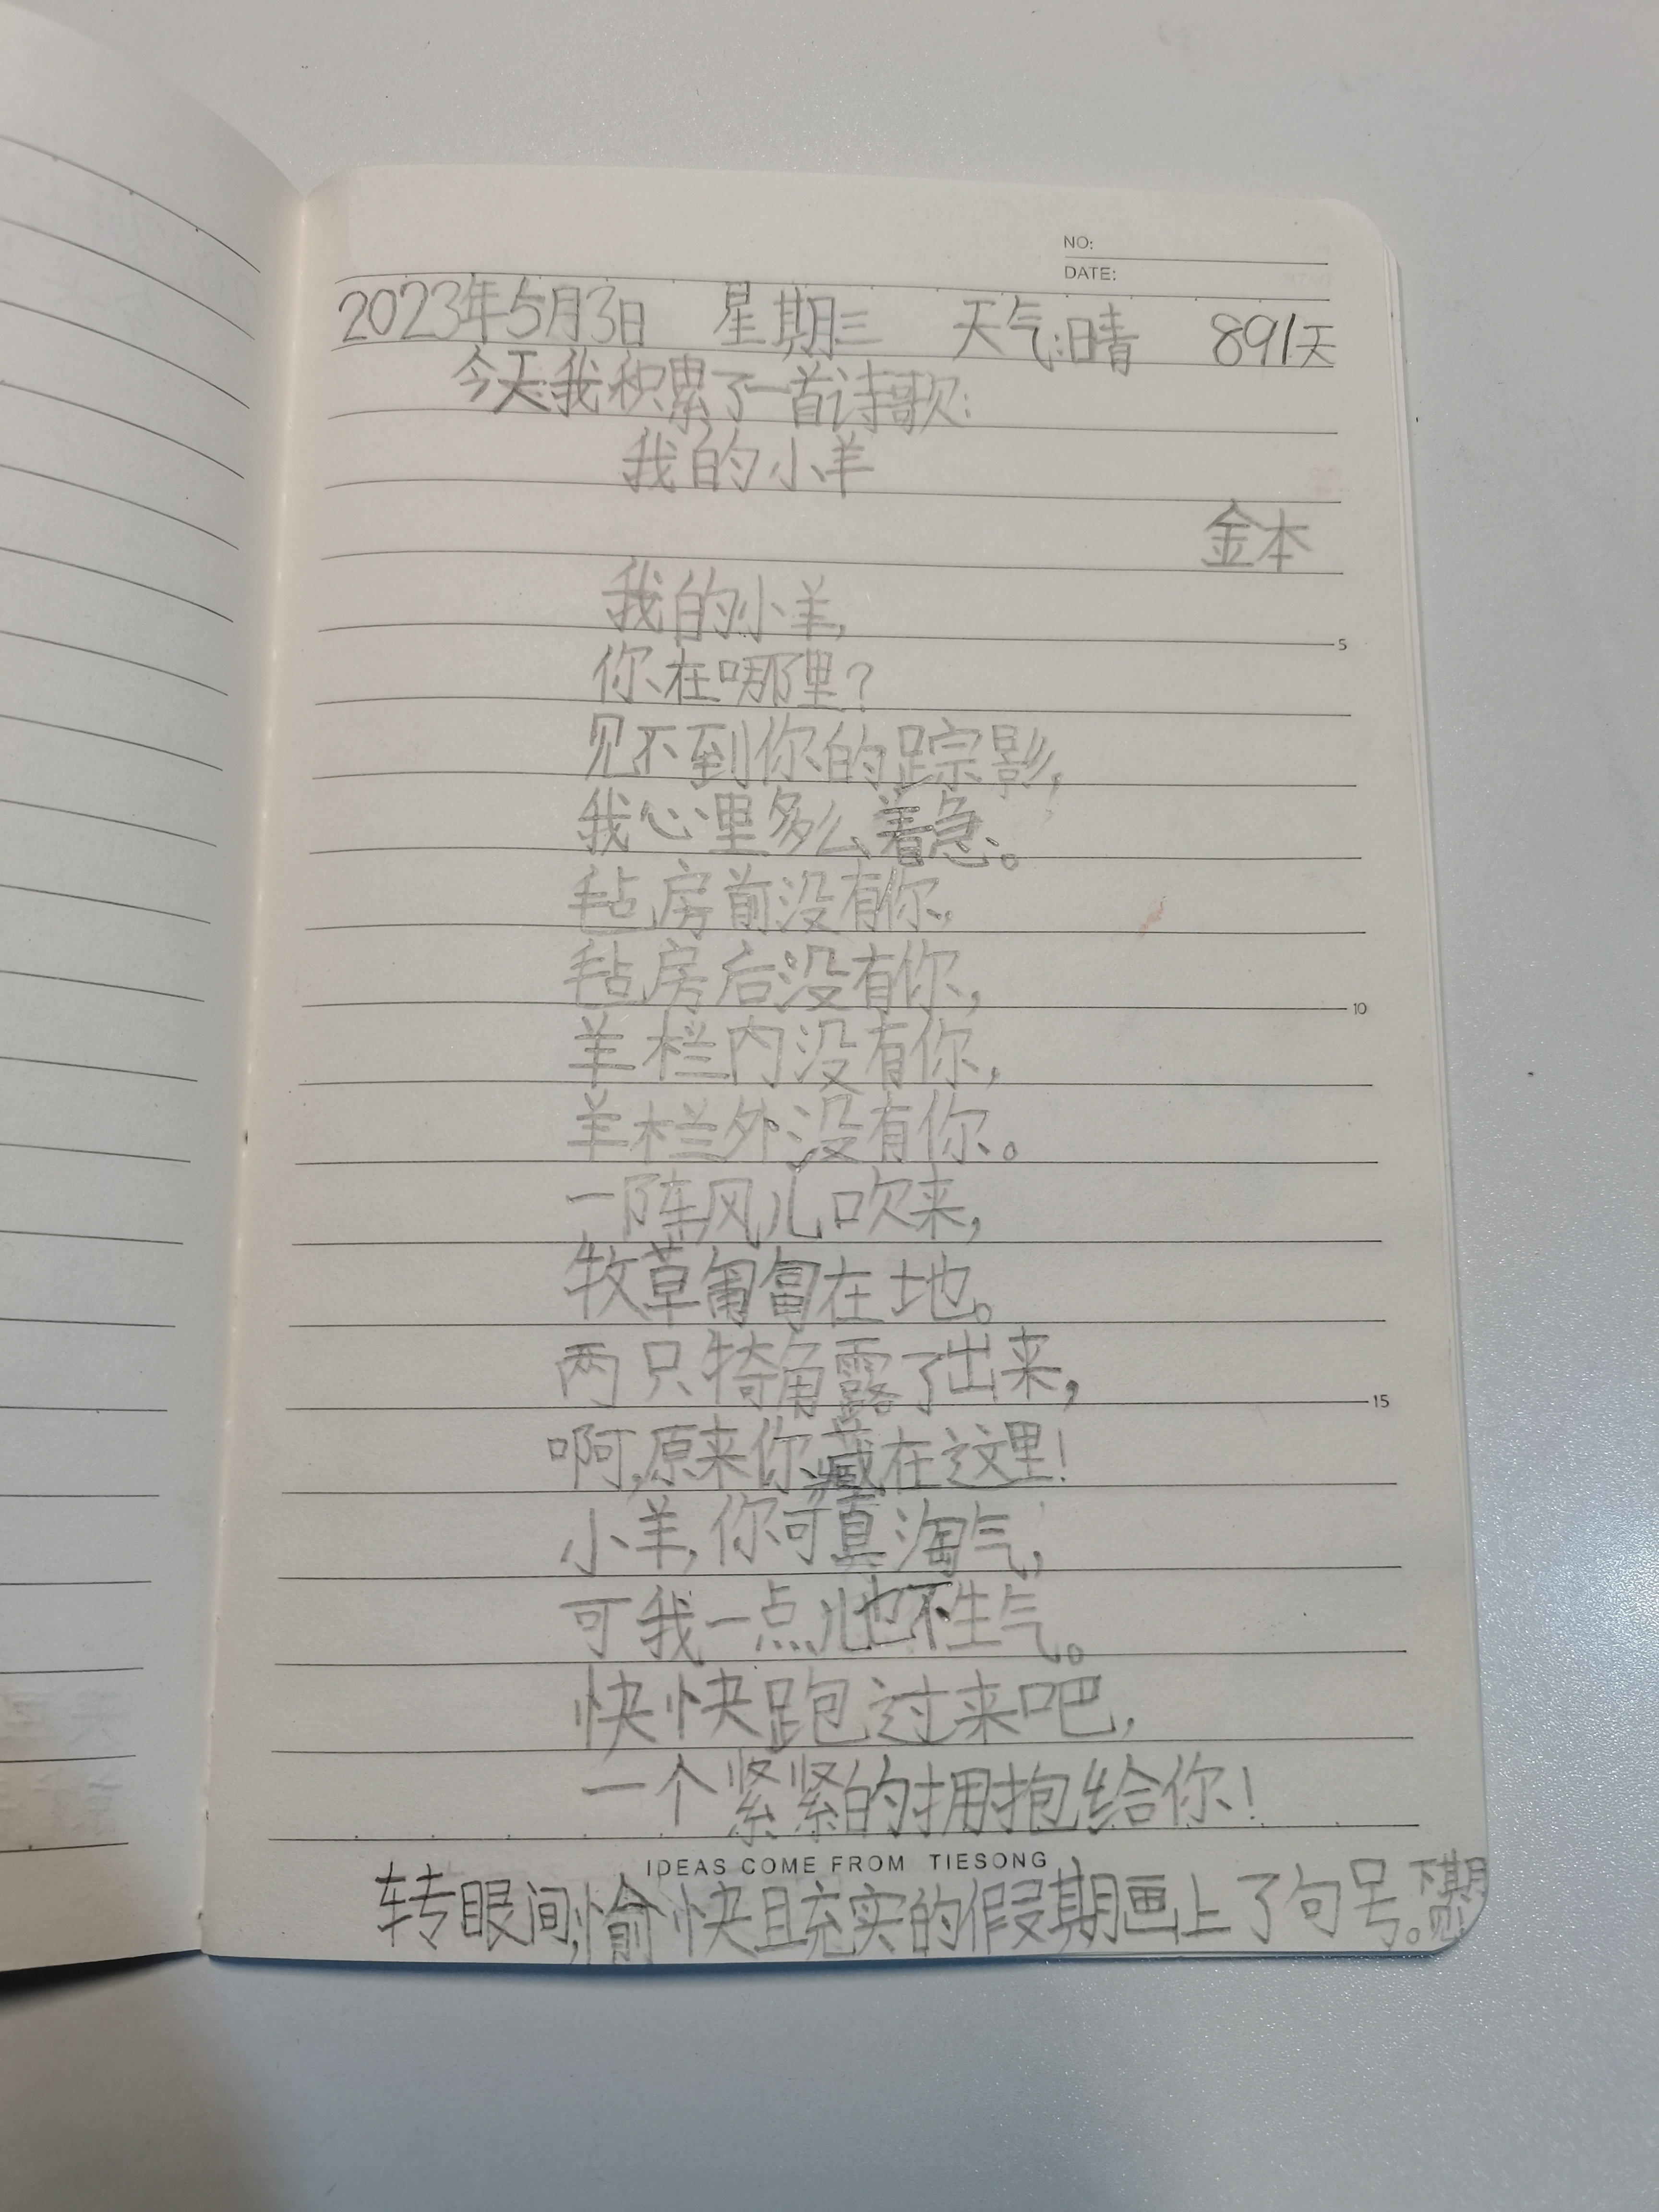 NO:
DATE:
2023年5月3日 星期三 天气:晴 891天
今天我积累了一首诗歌:
我的小羊
金本
我的小羊,
你在哪里?
5
见不到你的踪影,
我心里多么着急。
毡房前没有你,
毡房后没有你,
10
羊栏内没有你,
羊栏外没有你。
一阵风儿吹来,
牧草匍匐在地。
两只犄角露了出来,
15
啊,原来你藏在这里!
小羊,你可真淘气,
可我一点儿也不生气。
快快跑过来吧,
一个紧紧的拥抱给你!
IDEAS COME FROM TIESONG
转眼间,愉快且充实的假期画上了句号。下期见